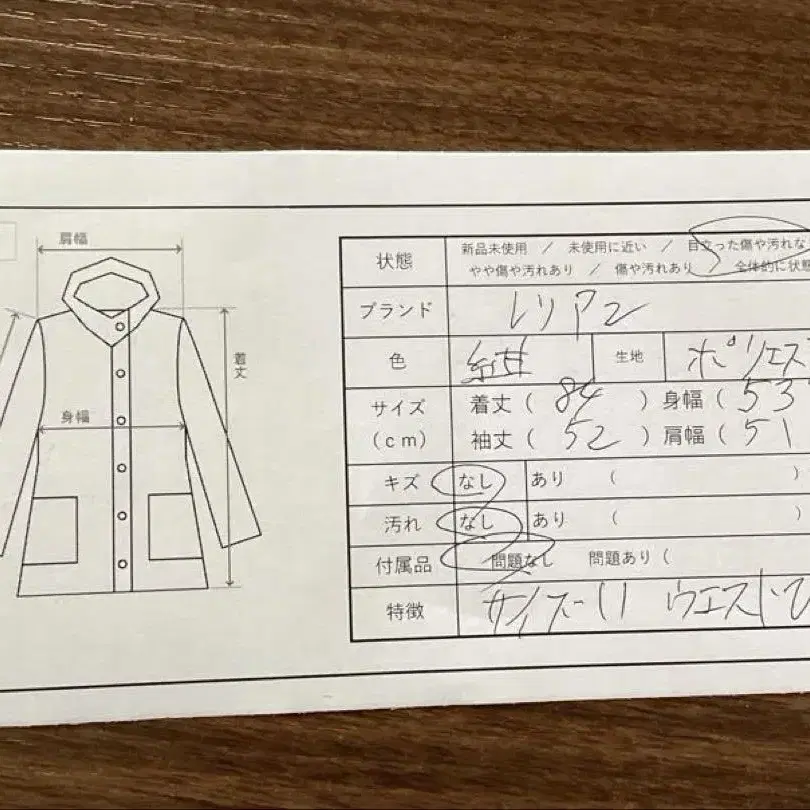 肩幅
着丈
身幅
状態 新品未使用 / 未使用に近い / 目立った傷や汚れな
やや傷や汚れあり / 傷や汚れあり / 全体的に状態
ブランド レリアン
色 紺 生地 ポリエス
サイズ (cm) 着丈 ( 84 ) 身幅 ( 53
袖丈 ( 52 ) 肩幅 ( 51
キズ なし あり ( )
汚れ なし あり ( )
付属品 問題なし 問題あり (
特徴 サイズ 11 ウエスト